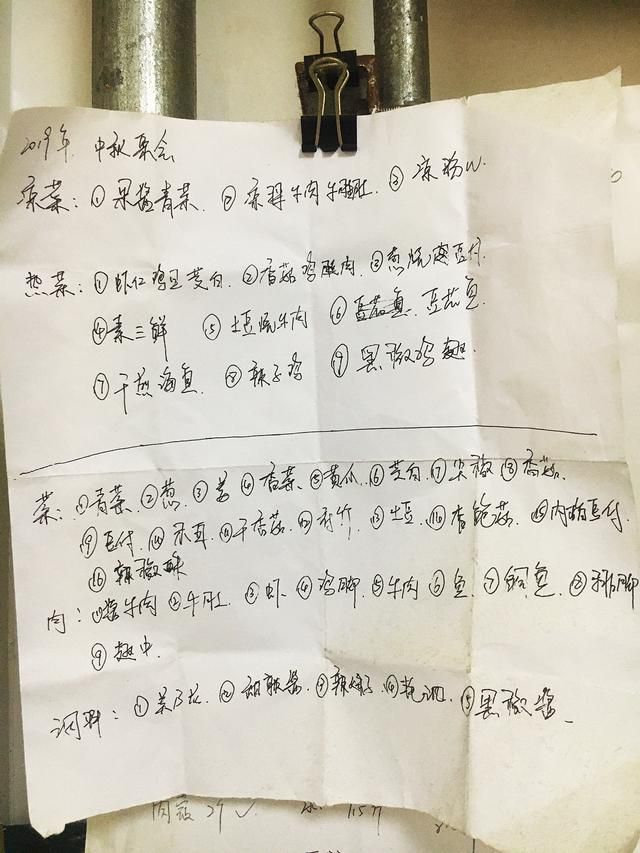 2019年 中秋聚会
凉菜：① 果猛青菜 ② 凉拌牛肉牛肚 ③ 凉粉W
热菜：① 虾仁鸡豆茭白 ② 香菇鸡 肉 ③ 葱烧 豆付
④ 素三鲜 ⑤ 土豆烧牛肉 ⑥ 豆豉鱼
⑦ 干煎海鱼 ⑧ 辣子鸡 ⑨ 黑椒鸡翅
菜：① 青菜 ② 葱 ③ 姜 ④ 香菜 ⑤ 黄瓜 ⑥ 茭白 ⑦ 尖椒 ⑧ 香菇
⑨ 豆付 ⑩ 木耳 ⑪ 干香菇 ⑫ 付竹 ⑬ 土豆 ⑭ 杏鲍菇 ⑮ 内脂豆付
⑯ 辣椒
肉：① 牛肉 ② 牛肚 ③ 虾 ④ 鸡脚 ⑤ 牛肉 ⑥ 鱼 ⑦ 鲳鱼 ⑧ 猪脚
⑨ 翅中
调料：① 菜 ② 甜 酱 ③ 辣妹子 ④ 花 ⑤ 黑椒酱
肉 29 ✓ 115斤